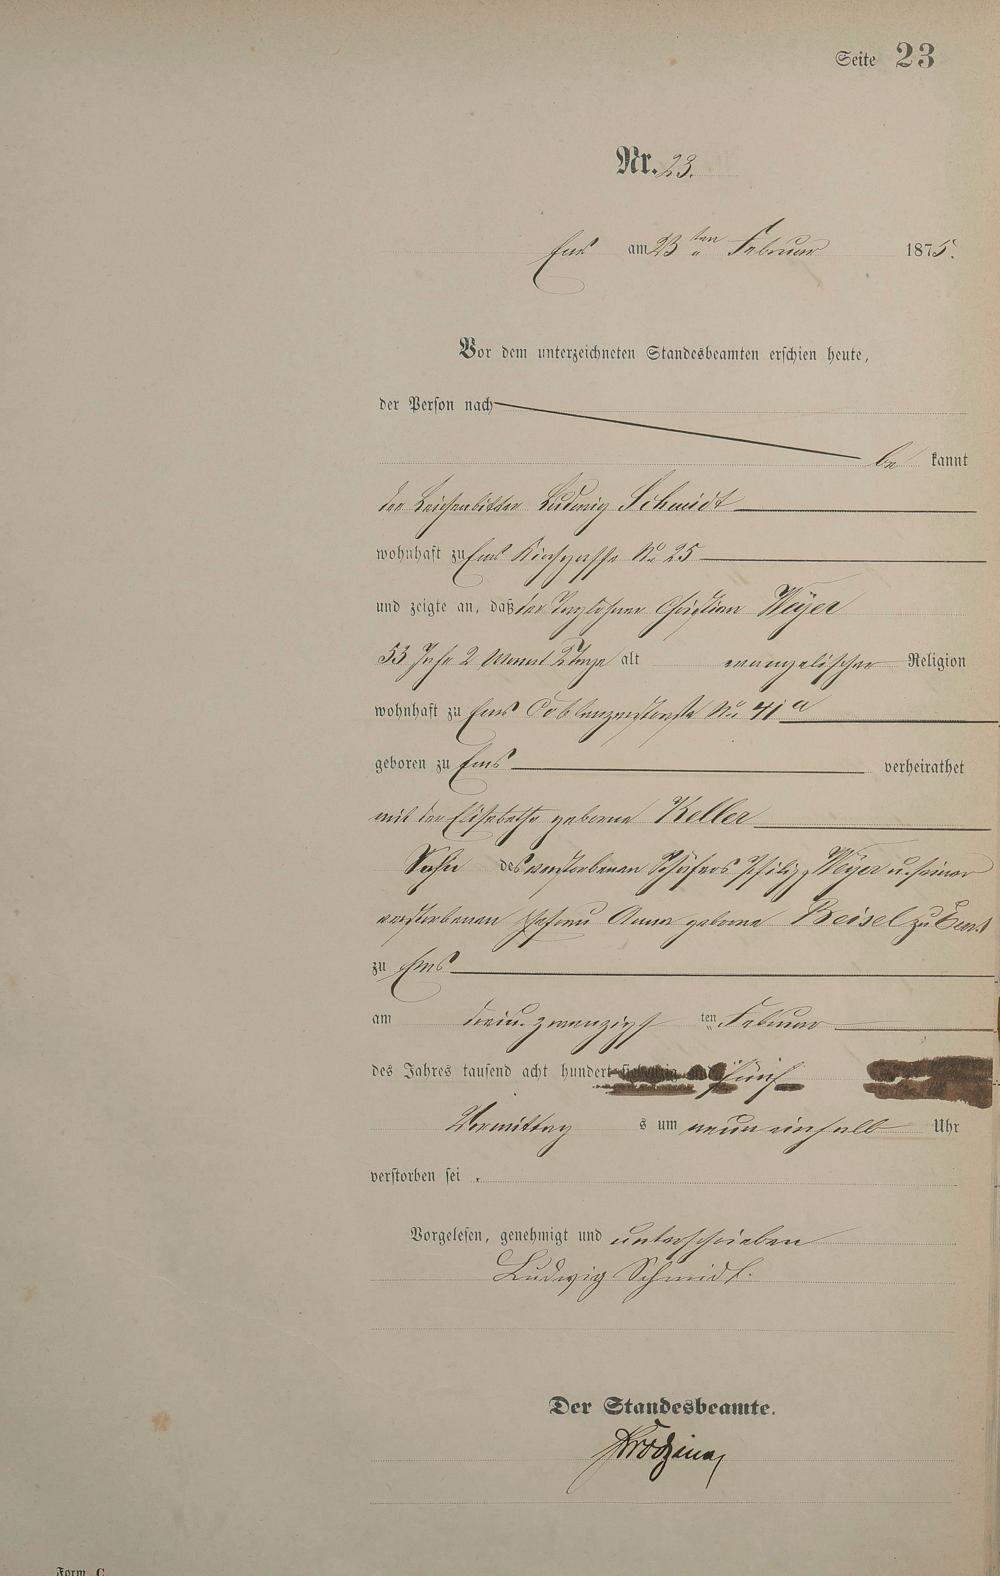 Seite 23
Nr. 23.
Ems am 23ten Februar 1875.
Vor dem unterzeichneten Standesbeamten erschien heute,
der Person nach
be kannt
der Leichenbitter Ludwig Schmidt
wohnhaft zu Ems Kirchgasse No 25
und zeigte an, daß der Taglöhner Christian Weyer
53 Jahr 2 Monat Tage alt evangelischer Religion
wohnhaft zu Ems Coblenzerstraße No 41a
geboren zu Ems verheirathet
mit der Elisabethe geborene Keller
Sohn des verstorbenen Schäfers Philipp Weyer u. seiner
verstorbenen Ehefrau Anna geborene Beisel zu Ems
zu Ems
am dreiu. zwanzigst ten Februar
des Jahres tausend acht hundert siebenzig und fünf
Vormittag s um neun einhalb Uhr
verstorben sei.
Vorgelesen, genehmigt und unterschrieben
Ludwig Schmidt.
Der Standesbeamte.
Form. C.